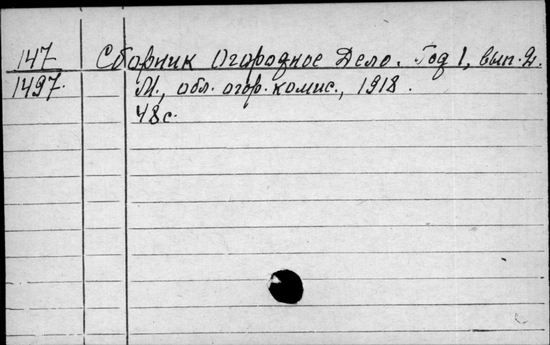 147 Сборник Огородное Дело. Год 1, вып. 2.
1497. М., обл. огор. комис., 1918.
48 с.